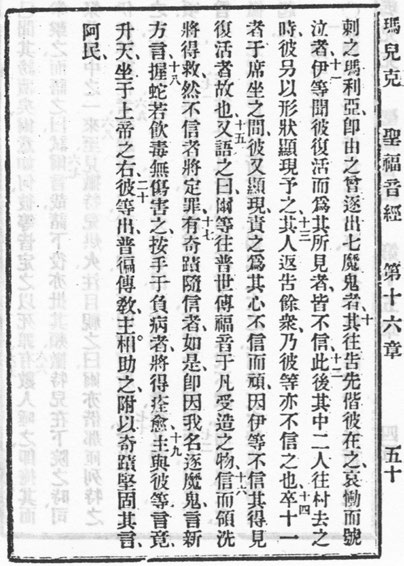 瑪兒克 聖福音經 第十六章 五十
剌之瑪利亞卽由之曾逐出七魔鬼者、十其往告先偕彼在之哀慟而號
泣者、十一伊等聞彼復活而爲其所見者、皆不信、十二此後其中二人往村去之
時、彼另以形狀顯現予之、十三其人返告餘衆、乃彼等亦不信之也、十四卒十一
者于席坐之間、彼又顯現、責之爲其心不信而頑、因伊等不信其得見
復活者故也、十五又語之曰、爾等往普世傳福音于凡受造之物、十六信而領洗
將得救、然不信者將定罪、十七有奇蹟隨信者如是、卽因我名逐魔鬼、言新
方言、十八握蛇、若飮毒無傷害之、按手于負病者、將得痊愈、十九主與彼等言竟、
升天坐于上帝之右、二十彼等出普徧傳敎、主相助之、附以奇蹟堅固其言、
阿民、